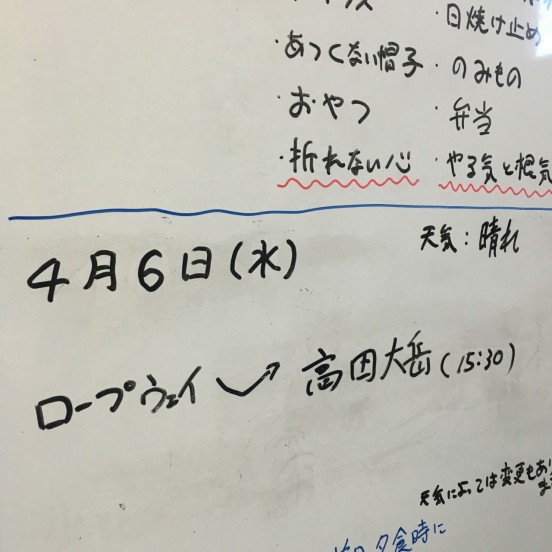 ・日焼け止め
・あつくない帽子
・のみもの
・おやつ
・弁当
・折れない心
・やる気と根気
4月6日(水)
天気:晴れ
ロープウェイ
高田大岳(15:30)
天気によっては変更もあり
夕食時に